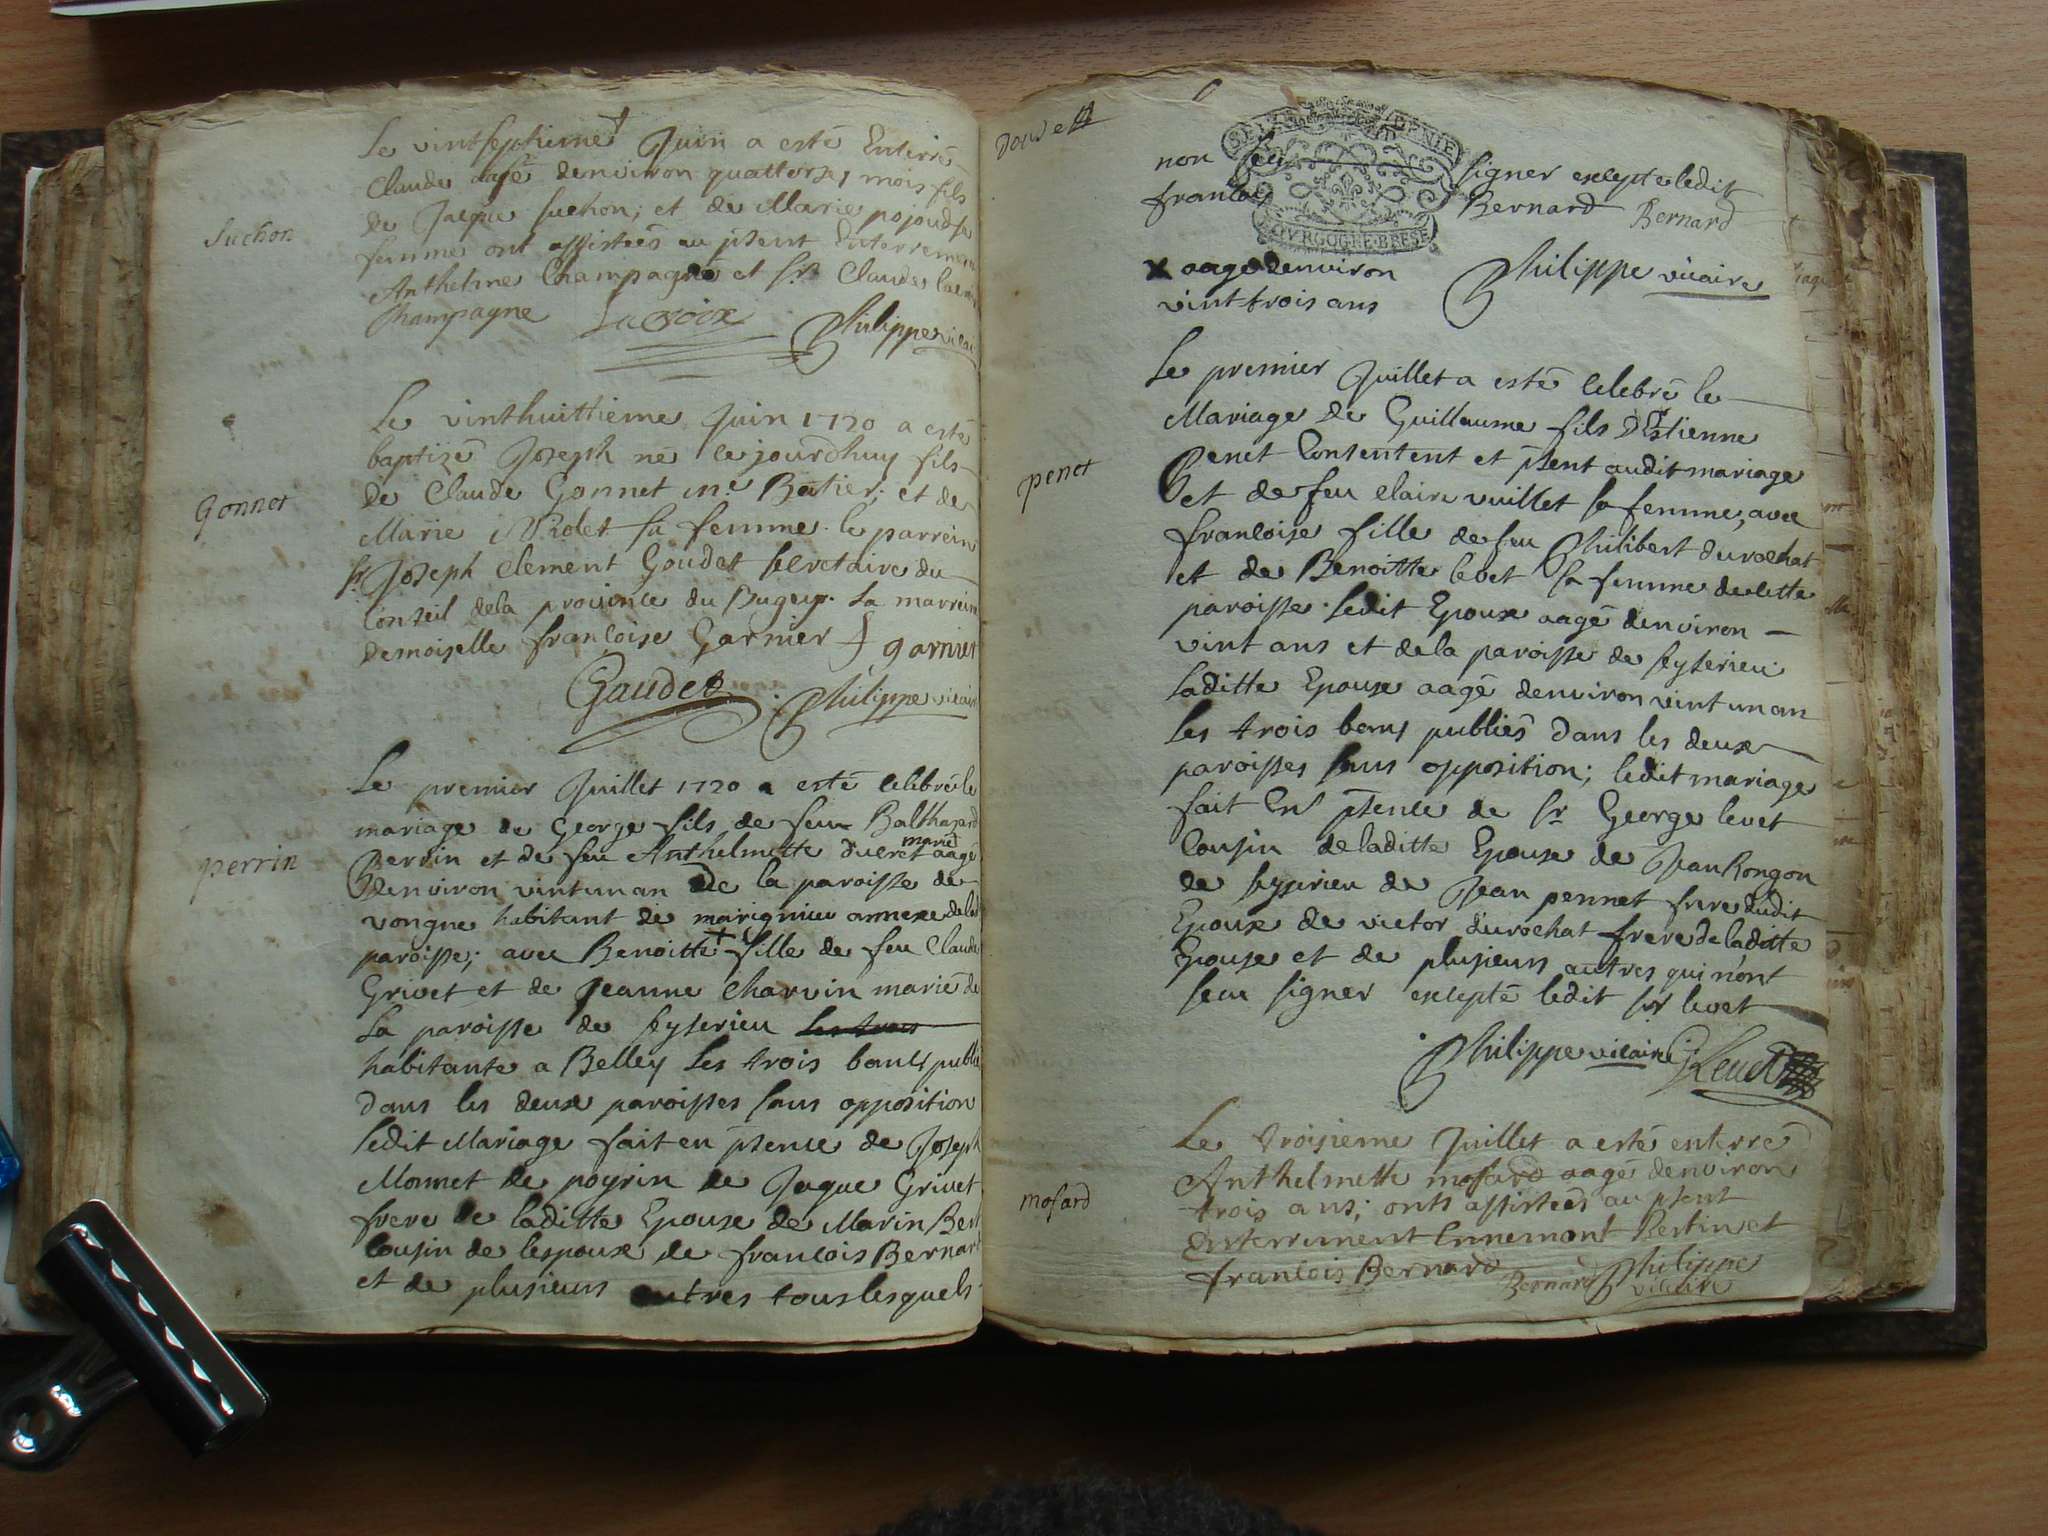 Suchon
Le vintseptieme Juin a esté Enterré
Claude aagé denviron quattorze mois fils
de Jaque suchon, et de Marie
femme ont assistées au psent Enterremen
Anthelme Champagne et sr Claude Lacroix
Champagne Lacroix Philippe vicai
Gonnet
Le vinthuittieme Juin 1720 a esté
baptizé Joseph né cejourdhuy fils
de Claude Gonnet me Batier, et de
Marie Rolet sa femme. le parrein
sr Joseph Clement Goudet secretaire du
Conseil dela province du Bugey. La marreine
Demoiselle francoise Garnier garnier
Gaudet Philippe vicair
perrin
Le premier Juillet 1720 a esté celebré le
mariage de George fils de feu Balthazard
marié
Perrin et de feu Anthelmette ducret aagé
denviron vintunan de la paroisse de
vongne habitant de marignieu annexe dela
paroisse; avec Benoitte + fille de feu Claude
Grivet et de Jeanne Charvin marié de
La paroisse de seyserieu Les trois
habitante a Belley Les trois bancs publie
dans les deux paroisses sans opposition
ledit Mariage fait en psence de Joseph
Monnet de poyrin de Jaque Grivet
frere de laditte Epouse de Marin Bert
cousin de lespoux de francois Bernart
et de plusieurs autres tous lesquels
SEIZE DENIE
BOVRGOGNE BRESE
non sceu signer excepté ledit
francois Bernard Bernard
x aagé denviron Philippe vicaire
vint trois ans
penet
Le premier Juillet a esté celebré le
Mariage de Guillaume fils D'Estienne
Penet Consentent et psent audit mariage
et de feu claire vuillet sa femme, avec
francoise fille de feu Philibert durochat
et de Benoitte levet sa femme decette
paroisse. ledit Epoux aagé denviron
vint ans et dela paroisse de seyserieu
Laditte Epouse aagé denviron vint un an
Les trois bans publiés dans les deux
paroisses sans opposition; ledit mariage
fait En psence de sr George levet
Cousin de laditte Epouse de Jean Rongon
de seyserieu de Jean pennet frere dudit
Epoux de victor durochat frere de laditte
Epouse et de plusieurs autres qui n'ont
sceu signer excepté ledit sr levet
Philippe vicaire Levet
mosard
Le troisieme Juillet a esté enterré
Anthelmette mosard aagé denviron
trois ans; onts assistées au psent
Enterrement Ennemont Bertin et
francois Bernard Bernard Philippe
vicaire